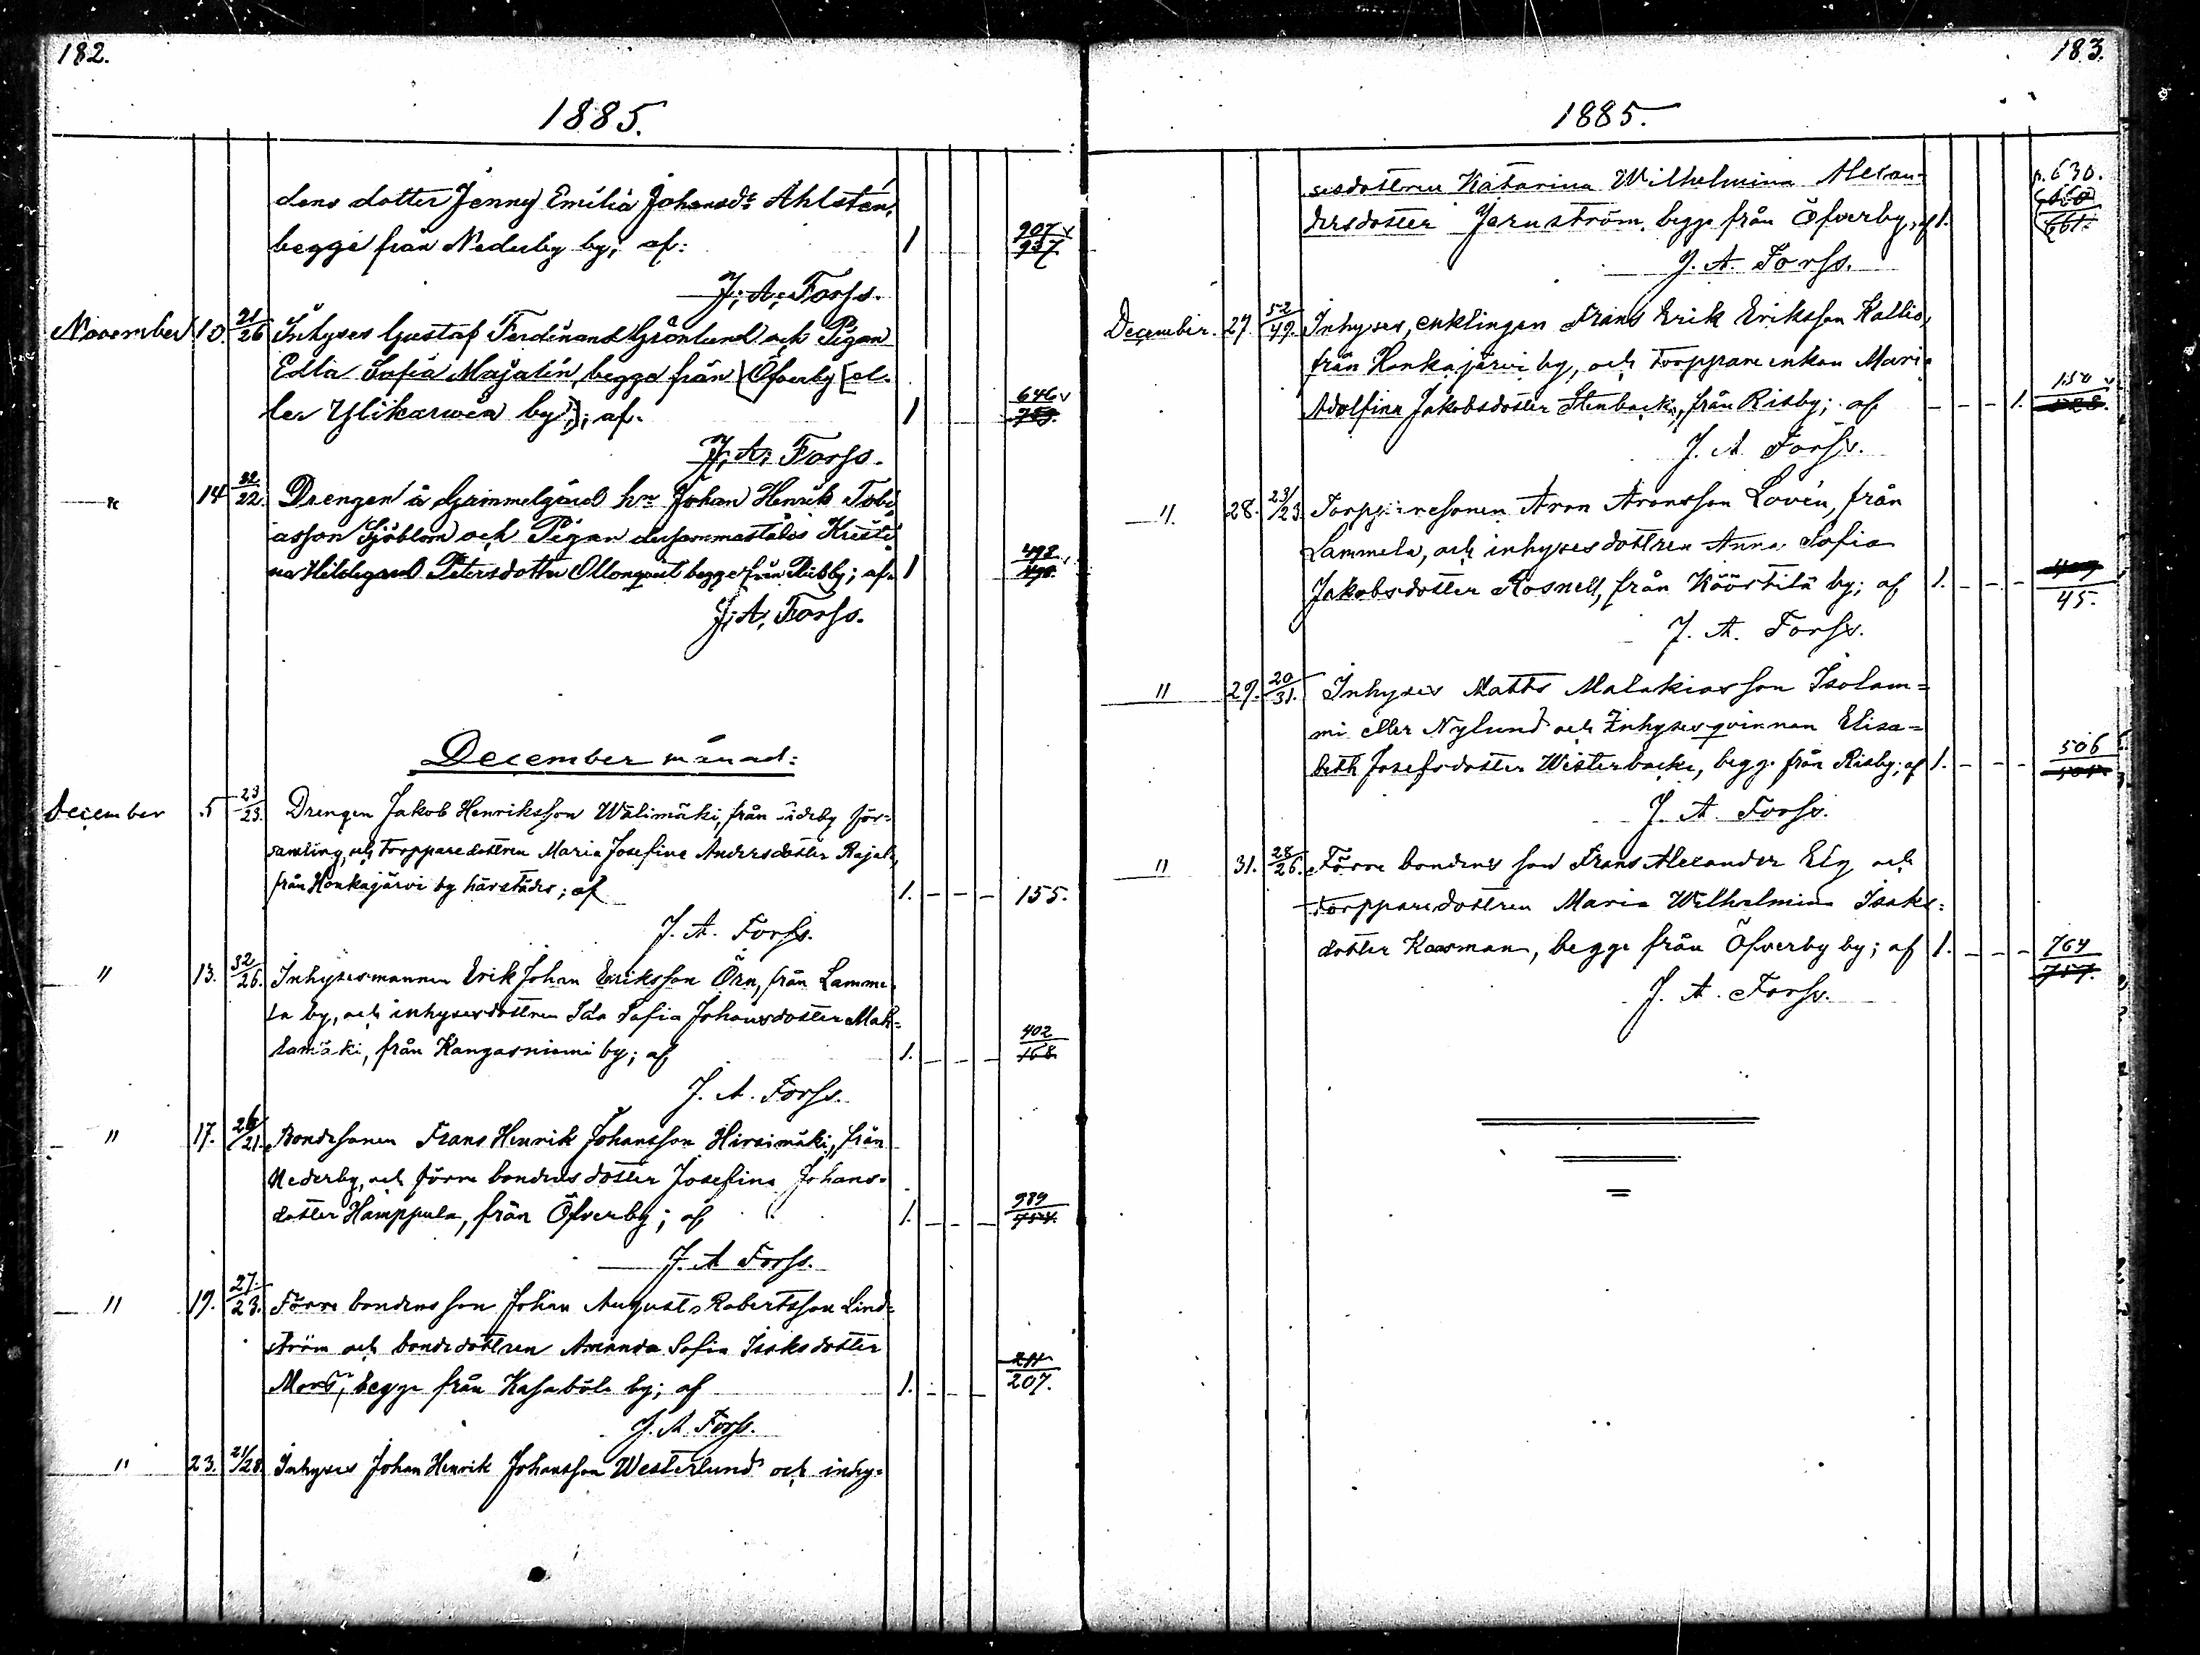 182.
1885.
dens dotter Jenny Emilia Johansdr Ahlstén,
begge från Nederby by; af: 1 907 937
J. A. Forss.
November 10. 21/26 Inhyses Gustaf Ferdinand Grönlund och Pigan
Edla Sofia Majalin, begge från (Öfverby [el-
ler Ylikarwen by]); af. 1 646
J. A. Forss.
" 14 32/22. Drengen å Gammelgård hn Johan Henrik Tobi
asson Sjöblom och Pigan dersammastädes Kristi
na Hildegard Petersdotter Ollonqvist begge från Risby; af. 1 498
J. A. Forss.
December månad:
December 5 23/23. Drengen Jakob Henriksson Wälimäki, från Sideby för-
samling, och torpparedottren Maria Josefina Andersdotter Rajala,
från Honkajärvi by härstädes; af 1. – – – 155.
J. A. Forss.
" 13. 32/26. Inhysesmannen Erik Johan Eriksson Örn, från Lamme
la by, och inhysesdottren Ida Sofia Johansdotter Mah-
lamäki, från Kangasniemi by; af 1. – – – 402 168
J. A. Forss.
" 17. 26/21. Bondesonen Frans Henrik Johansson Hirsimäki, från
Nederby, och förre bondens dotter Josefina Johans-
dotter Hamppula, från Öfverby; af 1. – – – 989
J. A Forss.
" 19. 27./23. Förre bondens son Johan August Robertsson Lind-
ström och bondedottren Amanda Sofia Isaksdotter
Mors, begge från Kasaböle by; af 1. – – – 207.
J. A Forss.
" 23. 21/28. Inhyses Johan Henrik Johansson Westerlund och inhy-
183.
1885.
sesdottren Katarina Wilhelmina Alexan-
dersdotter Jernström, begge från Öfverby, af 1. p. 630. 660 661.
J. A. Forss.
December. 27. 52/49. Inhyses, enklingen Frans Erik Eriksson Kallio,
från Honkajärvi by, och torppare enkan Maria
Adolfina Jakobsdotter Stenbacka, från Risby; af – – – 1. 150
J. A Forss.
" 28. 23/23. Torpparesonen Aron Aronsson Lovén, från
Lammela, och inhysesdottren Anna Sofia
Jakobsdotter Rosnell, från Köörtilä by; af 1. – – – 45.
J. A. Forss.
" 29. 20/31. Inhyses Matts Malakiasson Isolam-
mi eller Nylund och Inhysesqvinnan Elisa-
beth Josefsdotter Wisterbacka, begge från Risby; af 1. – – – 506
J. A. Forss.
" 31. 28/26. Förre bondens son Frans Alexander Elg och
torpparedottren Maria Wilhelmina Isaks-
dotter Koosman, begge från Öfverby by; af 1. – – – 764 757.
J. A. Forss.